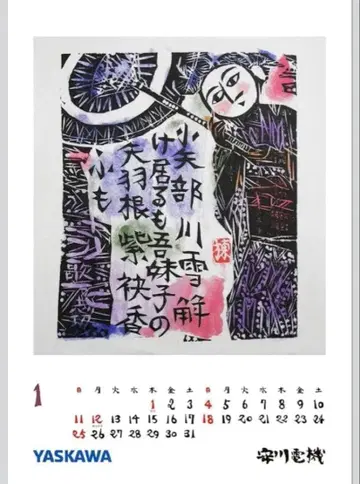 小矢部川雪解
け居るも吾妹子の
矢羽根紫袂香
ふも
1
日 月 火 水 木 金 土 日 月 火 水 木 金 土
1 2 3 4 5 6 7 8 9 10
11 12 13 14 15 16 17 18 19 20 21 22 23 24
25 26 27 28 29 30 31
YASKAWA 安川電機